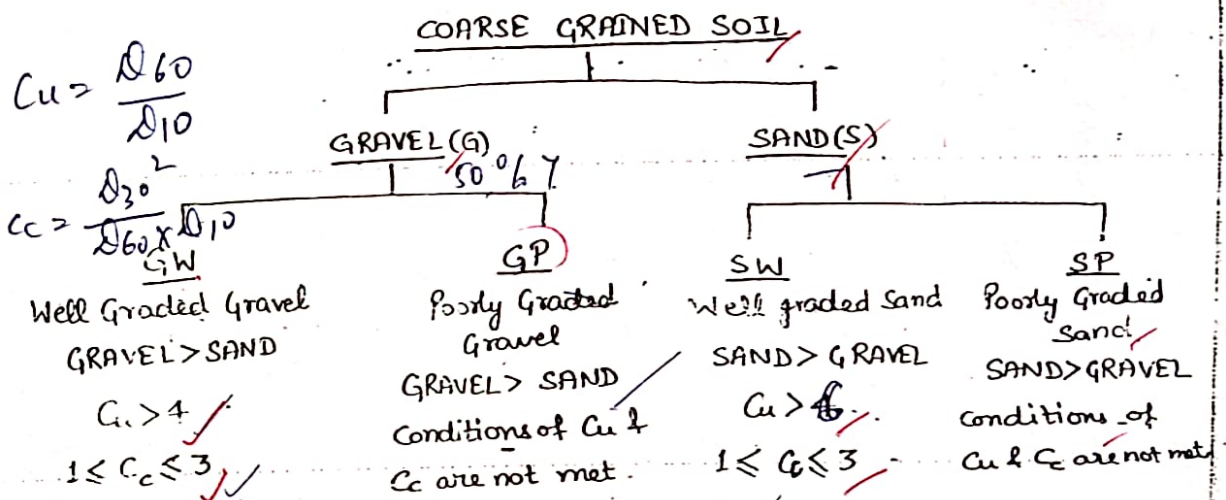 COARSE GRAINED SOIL
Cu = D60
D10
GRAVEL (G)
SAND (S)
50%
Cc = D30²
D60 x D10
GW
Well Graded Gravel
GRAVEL > SAND
Cu > 4
1 ≤ Cc ≤ 3
GP
Poorly Graded
Gravel
GRAVEL > SAND
Conditions of Cu &
Cc are not met.
SW
Well graded Sand
SAND > GRAVEL
Cu > 6
1 ≤ Cc ≤ 3
SP
Poorly Graded
Sand
SAND > GRAVEL
Conditions of
Cu & Cc are not met